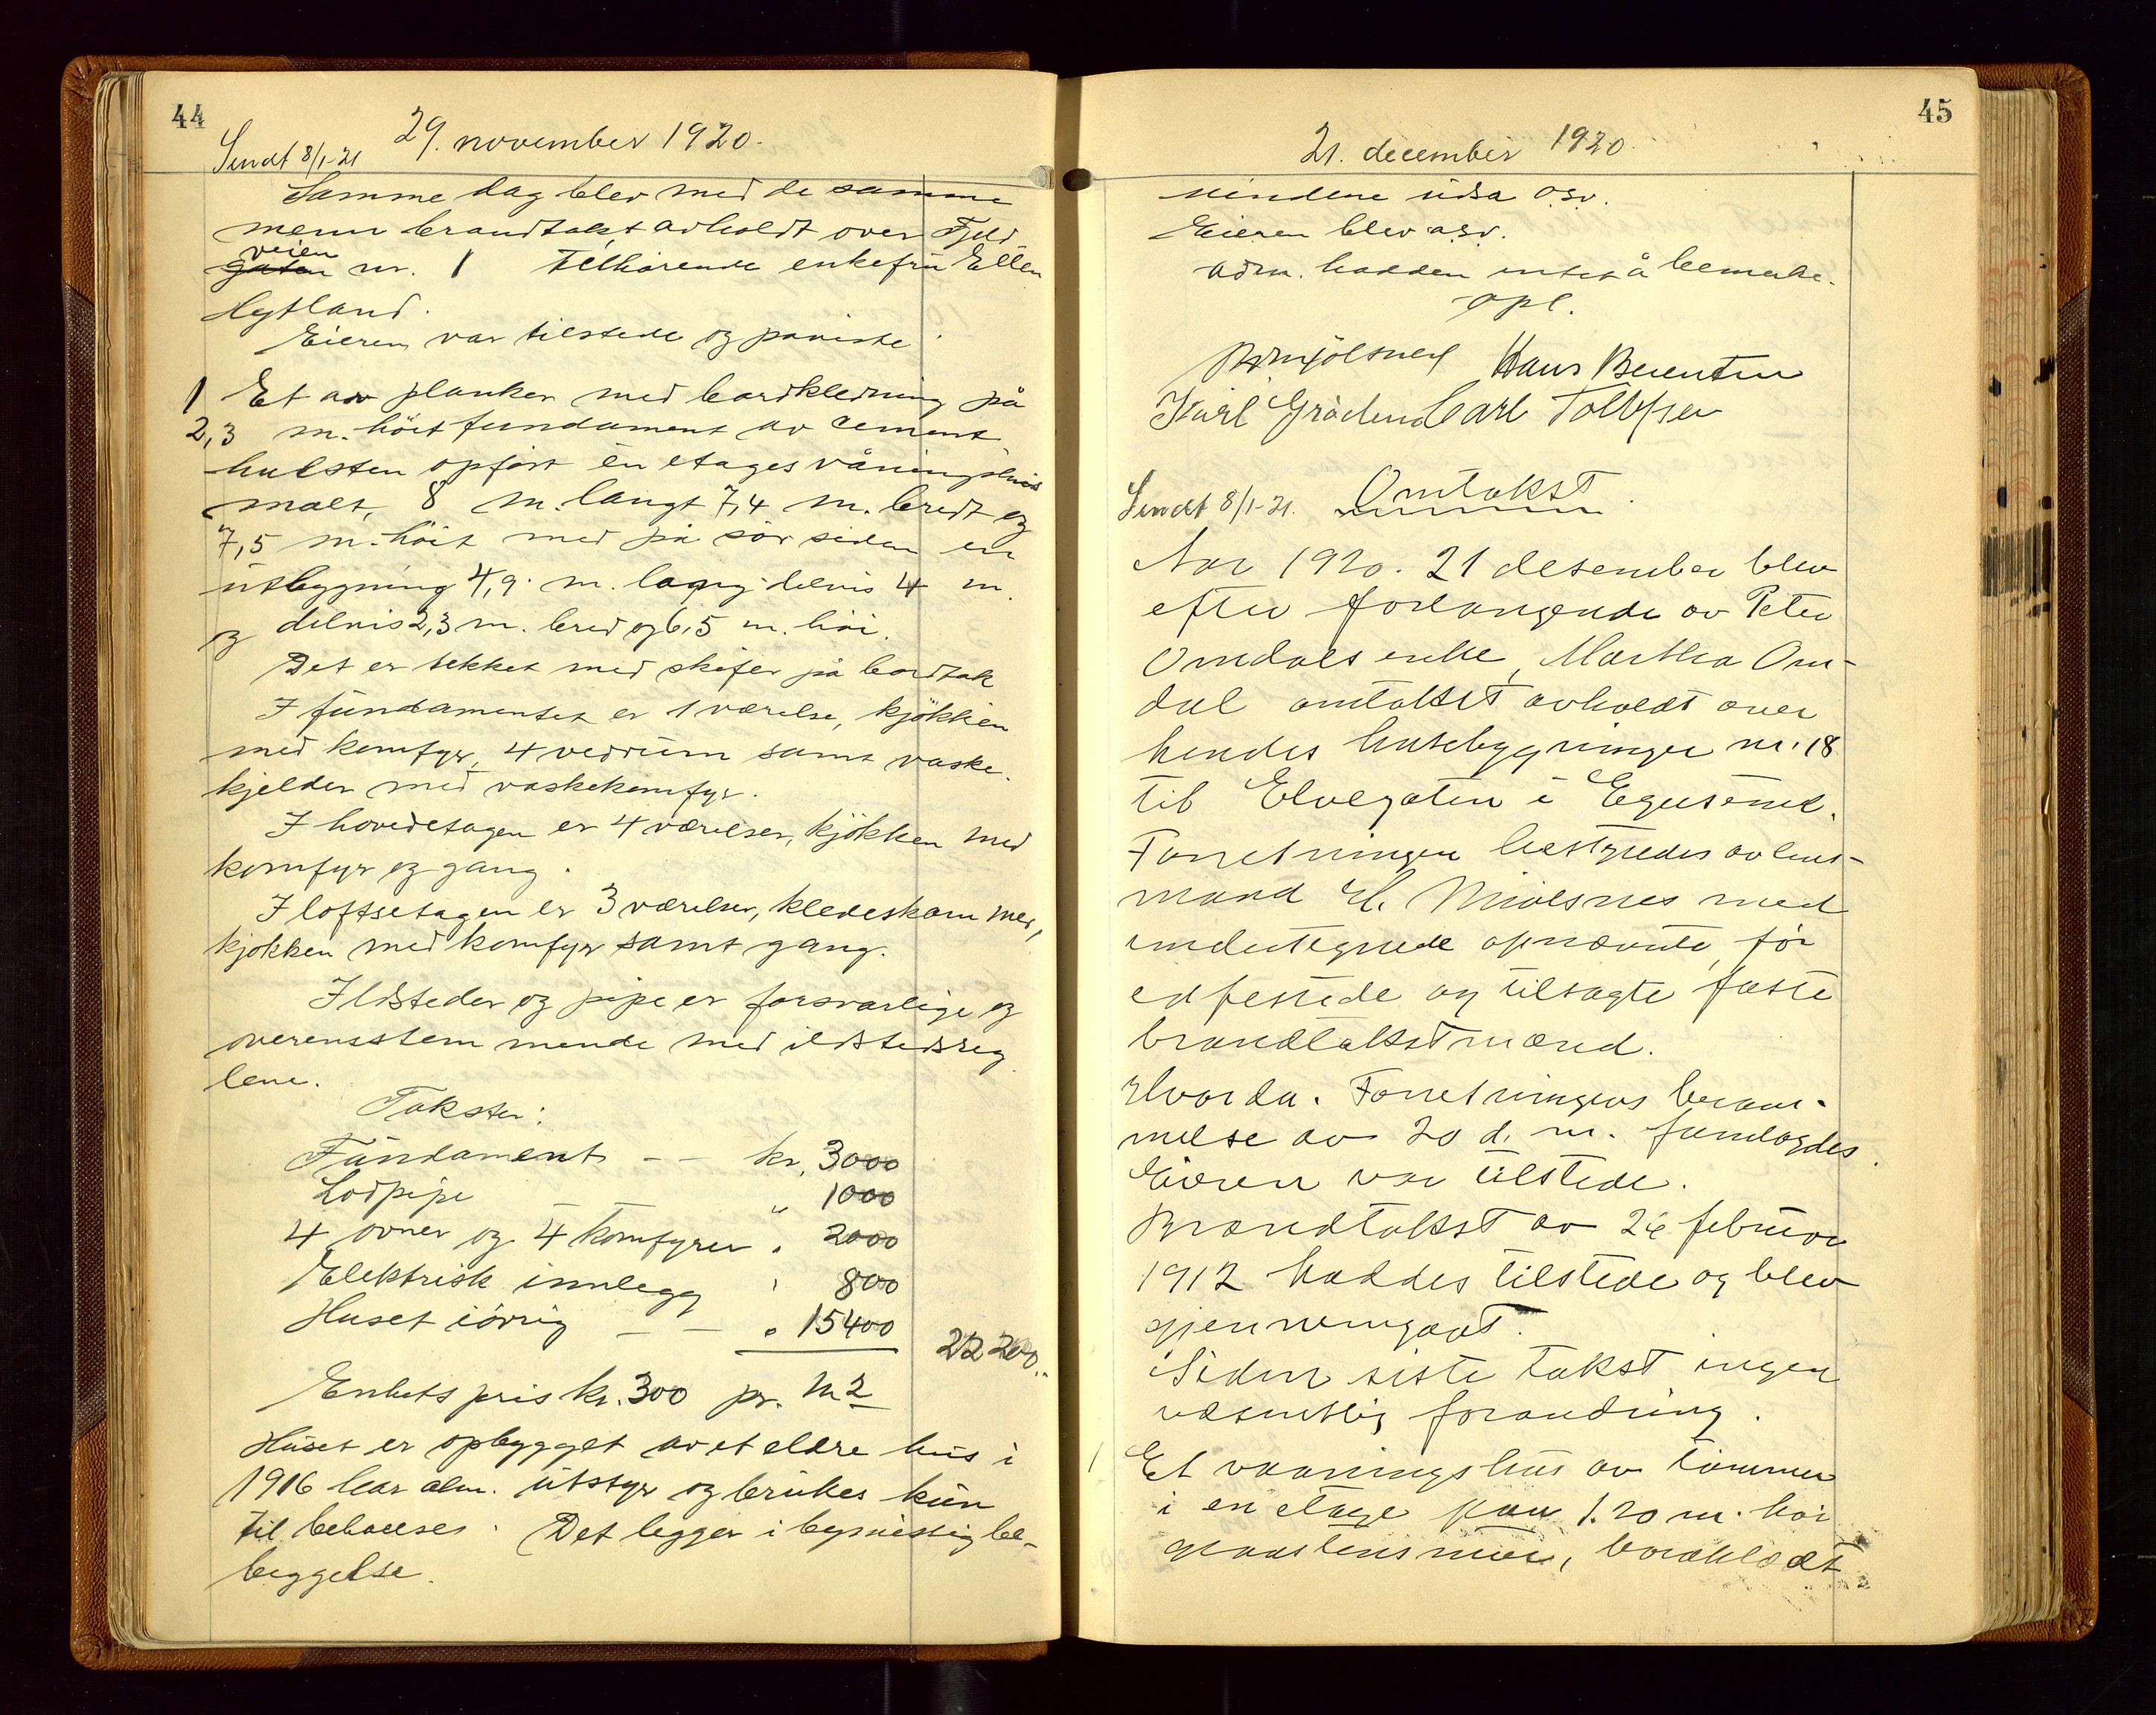 44
29. november 1920.
Sendt 8/1-21
Samme dag blev med de samme
menn brandtakst avholdt over Fjeld
veien
gaten nr. 1 tilhørende enkefru Ellen
Hytland.
Eieren var tilstede og påviste
1 Et av planker med bordkledning på
2,3 m. höit fundament av cement
hulsten opført en etages våningshus
malt, 8 m. langt 7,4 m. bredt og
7,5 m. höit med på sör siden en
utbygning 4,9 m. lang delvis 4 m.
og delvis 2,3 m. bred og 6,5 m. höi.
Det er tekket med skifer på bordtak
I fundamentet er 1 værelse, kjökken
med komfyr, 4 vedrum samt vaske-
kjelder med vaskekomfyr.
I hovedetagen er 4 værelser, kjökken med
komfyr og gang.
I loftsetagen er 3 værelser, kledeskammer,
kjökken med komfyr samt gang.
Ildsteder og pipe er forsvarlige og
overensstemmende med ildstedsreg
lene.
Takster:
Fundament - - kr. 3000
Lodpipe " 1000
4 ovner og 4 komfyrer " 2000
Elektrisk innlegg " 800
Huset iövrig - - " 15400
22 200..
Enhetspris kr. 300 pr. m2
Huset er opbygget av et eldre hus i
1916 har alm. utstyr og brukes kun
til beboelse. Det ligger i bymessig be-
byggelse.
45
21. december 1920.
Eieren blev osv.
Adm. hadde intet å bemerke.
opl.
Hans Berentsen
Karl Gråd Carl Tollefsen
Sendt 8/1-21. Omtakst.
Aar 1920. 21 desember blev
efter forlangende av Peter
Omdals enke, Martha Om-
dal omtakst avholdt over
hendes husebygninger nr. 18
til Elvegaten i Egersund.
Forretningen bestyredes av lens-
mand H. Mjölsnes med
undertegnede opnævnte, før
edfestede og tilsagte faste
brandtakstmænd.
Hvorda. Forretningens beram-
melse av 20 d. m. fremlagdes.
Eieren var tilstede.
Brandtakst av 26 februar
1912 haddes tilstede og blev
gjennemgaat.
Siden siste takst ingen
væsentlig forandring.
1 Et vaaningshus av tømmer
i en etage paa 1.20 m. høi
graastensmur, bordklædt